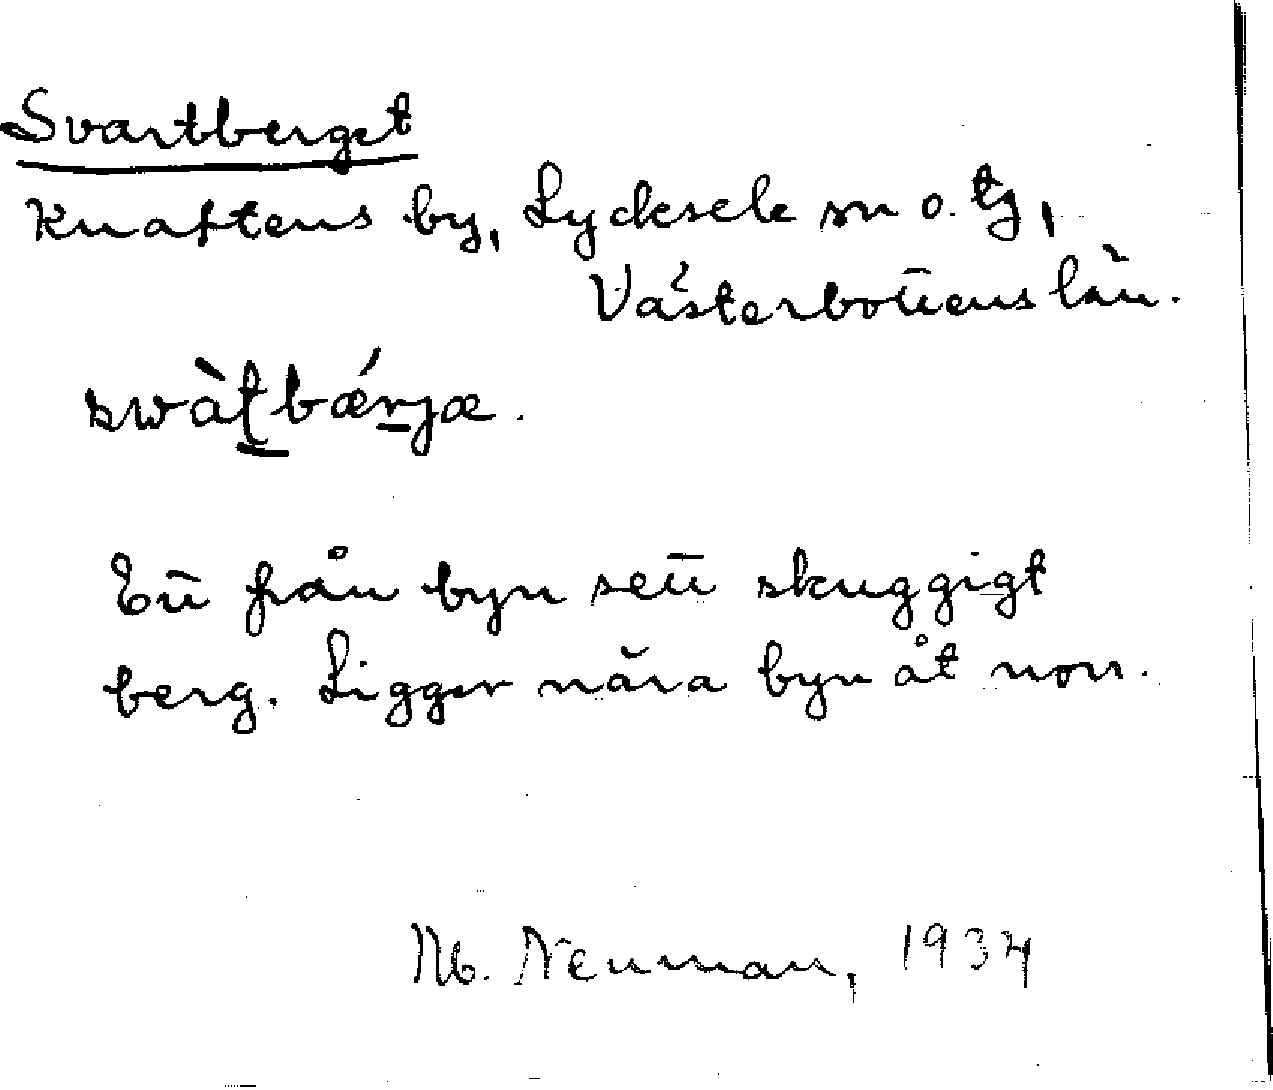 Svartberget
Knaftens by, Lycksele sn o. tg,
Västerbottens län.
swàṯbǽṟjæ.
Ett från byn sett skuggigt
berg. Ligger nära byn åt norr.
Neuman, 1934